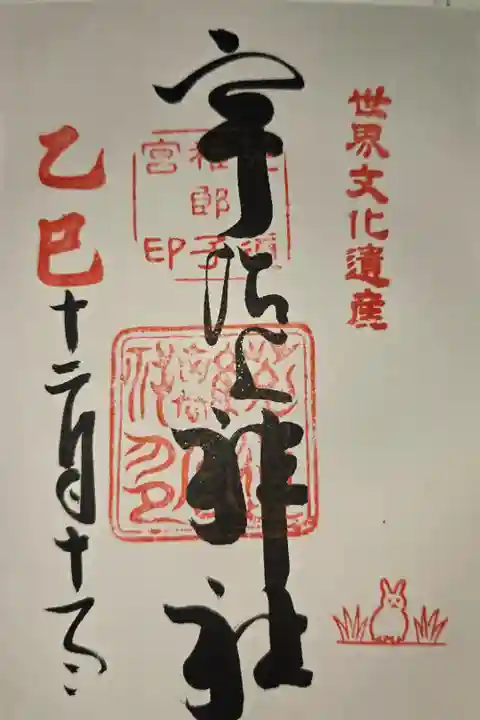 世界文化遺産
宇治上神社
菟道稚郎子宮印
乙巳
十二月十二日